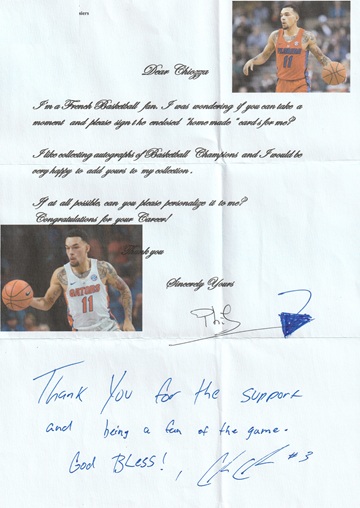 Dear Chiozza
11
I'm a French Basketball fan. I was wondering if you can take a
moment and please sign the enclosed "home made" card is for me?
I like collecting autographs of Basketball Champions and I would be
very happy to add yours to my collection.
If at all possible, can you please personalize it to me?
Congratulations for your Career!
Thank you
GATORS
11
Sincerely Yours
Thank You for the support
and being a fan of the game.
God Bless!, #3